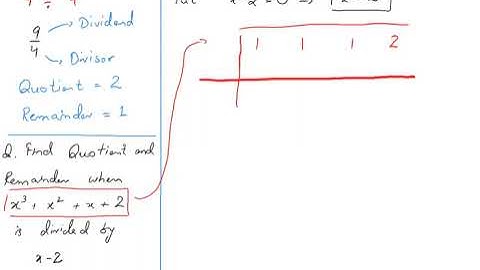 9/4 → Dividend
→ Divisor
Quotient = 2
Remainder = 1
Q. Find Quotient and
Remainder when
x³ + x² + x + 2
is divided by
x-2
1 1 1 2